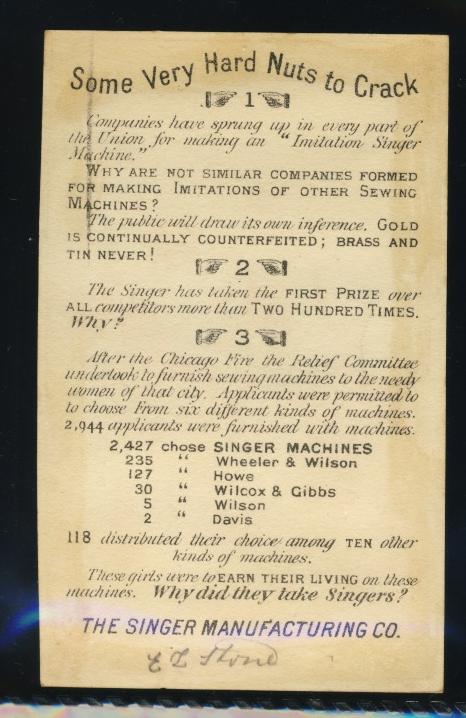 Some Very Hard Nuts to Crack
1
Companies have sprung up in every part of
the Union for making an "Imitation Singer
Machine."
WHY ARE NOT SIMILAR COMPANIES FORMED
FOR MAKING IMITATIONS OF OTHER SEWING
MACHINES?
The public will draw its own inference. GOLD
IS CONTINUALLY COUNTERFEITED; BRASS AND
TIN NEVER!
2
The Singer has taken the FIRST PRIZE over
ALL competitors more than TWO HUNDRED TIMES.
Why?
3
After the Chicago Fire the Relief Committee
undertook to furnish sewing machines to the needy
women of that city. Applicants were permitted to
to choose from six different kinds of machines.
2,944 applicants were furnished with machines.
2,427 chose SINGER MACHINES
235 " Wheeler & Wilson
127 " Howe
30 " Wilcox & Gibbs
5 " Wilson
2 " Davis
118 distributed their choice among TEN other
kinds of machines.
These girls were to EARN THEIR LIVING on these
machines. Why did they take Singers?
THE SINGER MANUFACTURING CO.